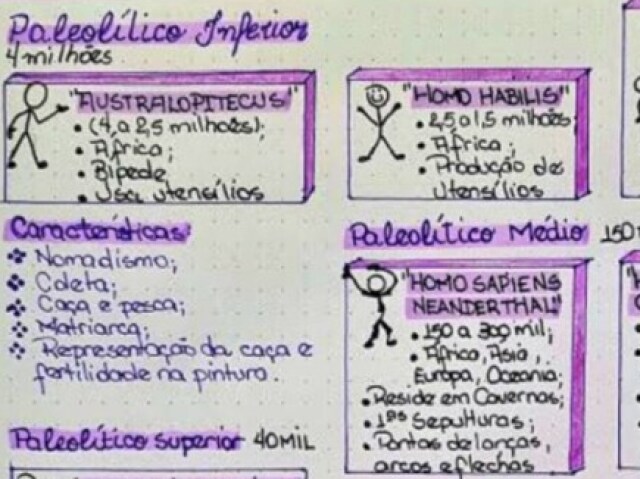 Paleolílico Inferior
4 milhões
"AUSTRALOPITECUS"
• (4,a 2,5 milhões);
• África;
• Bípede
• Usa utensílios
"HOMO HABILIS"
• 2,5 a 1,5 milhões;
• África;
• Produção de
Utensílios
Características:
Nomadismo;
Coleta;
Caça e pesca;
Matriarca;
Representação da caça e
fertilidade na pintura.
Paleolítico Médio 150
"HOMO SAPIENS
NEANDERTHAL"
• 150 a 300 mil;
• África, Ásia,
Europa, Oceania;
• Reside em Cavernas;
• 1ªs Sepulturas;
• Pontas de lanças,
arcos e flechas
Paleolítico Superior 40MIL